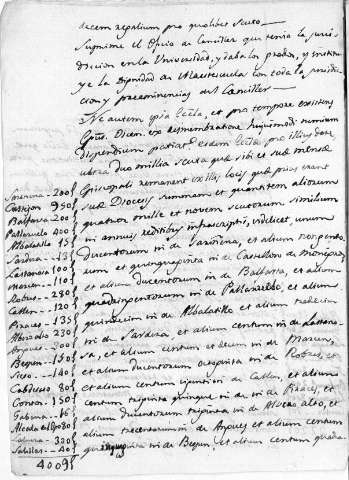 decem regalium pro quolibet scuto
Suprime el Oficio de Canciller que tenia la juris-
diccion en la Universidad, y daba los grados, y institu
ye la Dignidad de Maestrescuela con toda la jurisdic
cion y preeminencias del Canciller
Ne autem et pro tempore existens
Epûs. Oscen. ex dismembratione huiusmodi nimium
dispendium patiatur eisdem pro illius dote
ultra duo millia scuta quæ sibi et suæ mensæ
Episcopali remanent ex illis locis quæ prius erant
suæ Diocesis summam et quantitatem aliorum
quatuor mille et novem scutorum similium
in annuis redditibus infrascriptis, videlicet unum
Ducentorum in de Sariñena, et alium nongento
rum et quinquaginta in de Castellon de Monegros,
et alium ducentorum in de Balfarta, et alium
quadringentorum in de Pallaruelo, et alium
quindecim in de Albalatillo et alium tredecim
in de Sardera et alium centum in de Lastano-
sa, et alium centum et decem in de Marcen,
et alium ducentorum in de Robres, et
alium centum viginti in de Catllen, et alium
centum triginta quinque in de Piraces, et
alium ducentorum triginta in de Albero alto, et
alium trecentorum in de Argues et alium centum
quinquag in de Bespen, et alium centum quadra
Sarinena - 200
Castejon 950
Balfarta - 200
Pallaruelo 400
Albalatillo 15
Sardera - 13
Lastanosa 100
Marcen - 110
Robres - 290
Catllen - 120
Piraces - 135
Albero alto 230
Bespen - 150
Sieso - 140
Cabdesaso 80
Torres - 150
Gabarda - 16
Alcala del Obpo 80
Salillas - 40
4009